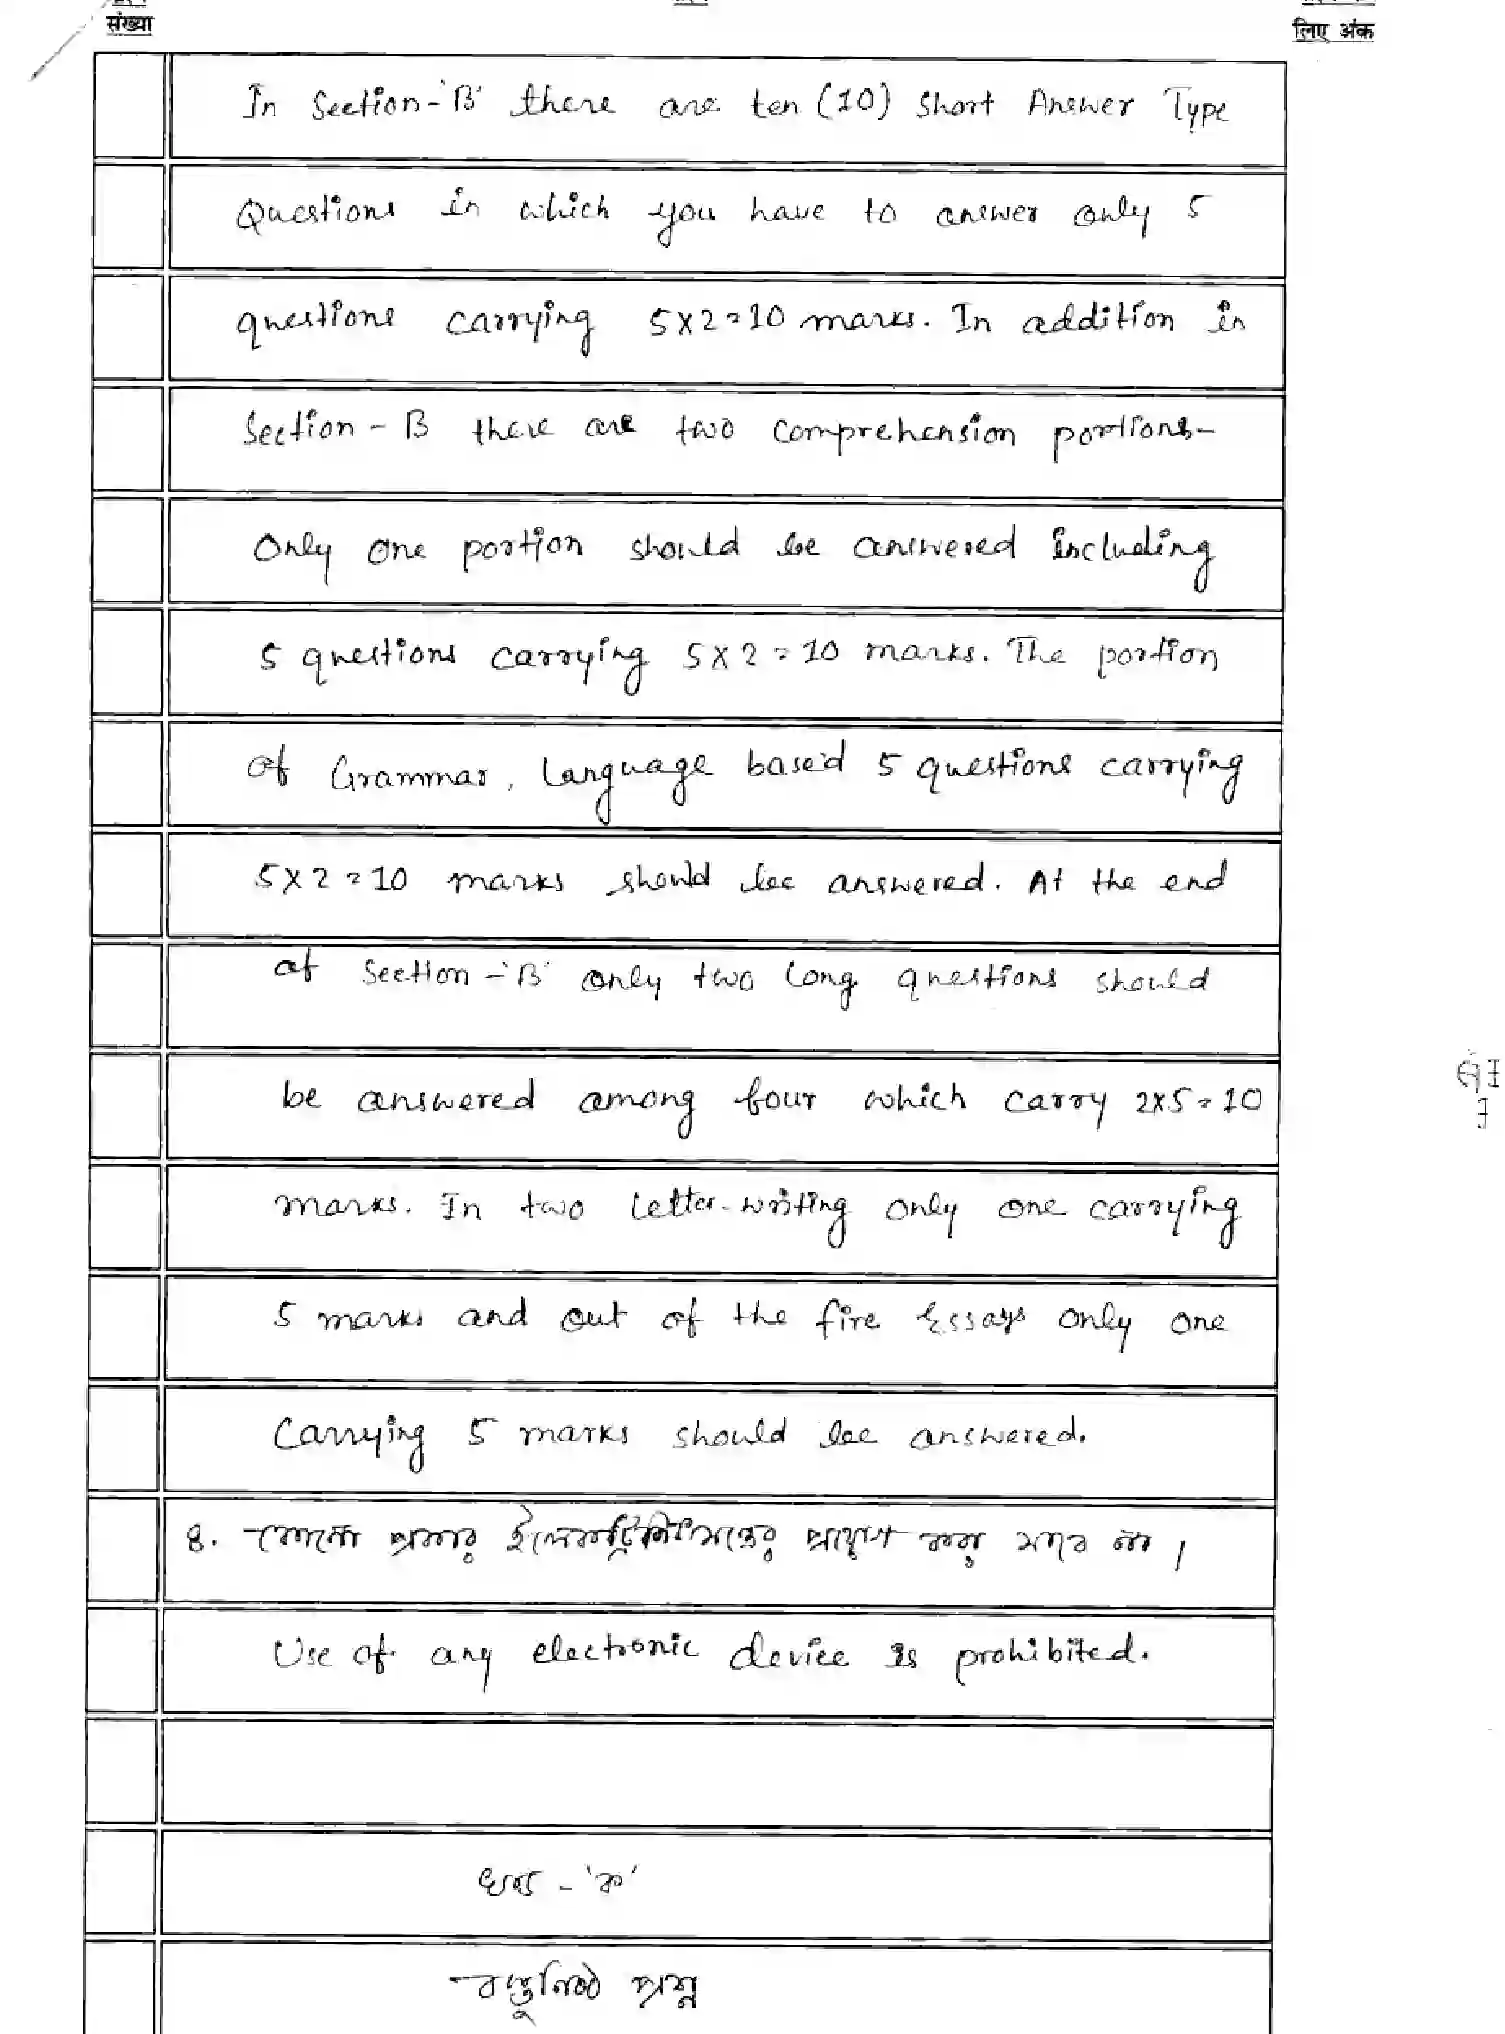 संख्या
लिए अंक
In Section-'B' there are ten (10) Short Answer Type
Questions in which you have to answer only 5
questions carrying 5×2=10 marks. In addition in
Section - B there are two comprehension portions-
Only one portion should be answered including
5 questions carrying 5×2=10 marks. The portion
of Grammar, language based 5 questions carrying
5×2=10 marks should be answered. At the end
of Section-'B' only two long questions should
be answered among four which carry 2×5=10
marks. In two letter-writing only one carrying
5 marks and out of the five Essays only one
carrying 5 marks should be answered.
৪. কোনো প্রকার প্রয়োগ করা না।
Use of any electronic device is prohibited.
খণ্ড - 'ক'
বস্তুনিষ্ঠ প্রশ্ন